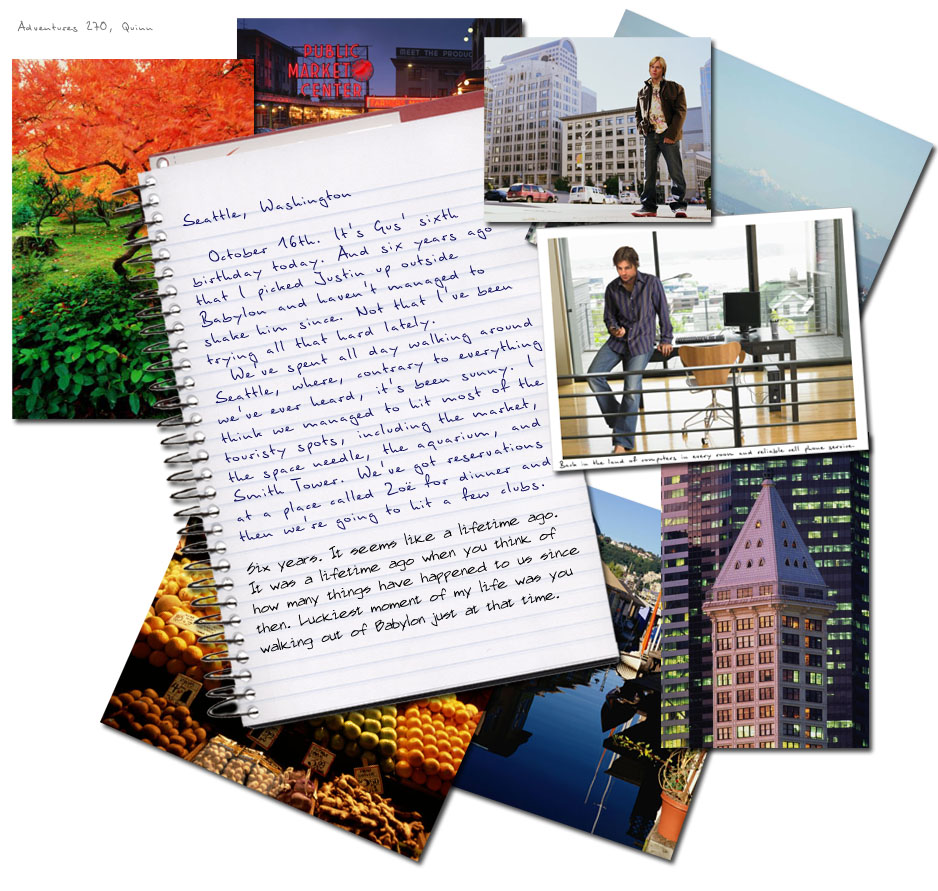 Adventures 270, Quinn
PUBLIC
MARKET
CENTER
MEET THE PRODUC
Seattle, Washington
October 16th. It's Gus' sixth
birthday today. And six years ago
that I picked Justin up outside
Babylon and haven't managed to
shake him since. Not that I've been
trying all that hard lately.
We've spent all day walking around
Seattle, where, contrary to everything
we've ever heard, it's been sunny. I
think we managed to hit most of the
touristy spots, including the market,
the space needle, the aquarium, and
Smith Tower. We've got reservations
at a place called Zoë for dinner and
then we're going to hit a few clubs.
Six years. It seems like a lifetime ago.
It was a lifetime ago when you think of
how many things have happened to us since
then. Luckiest moment of my life was you
walking out of Babylon just at that time.
Back in the land of computers in every room and reliable cell phone service.